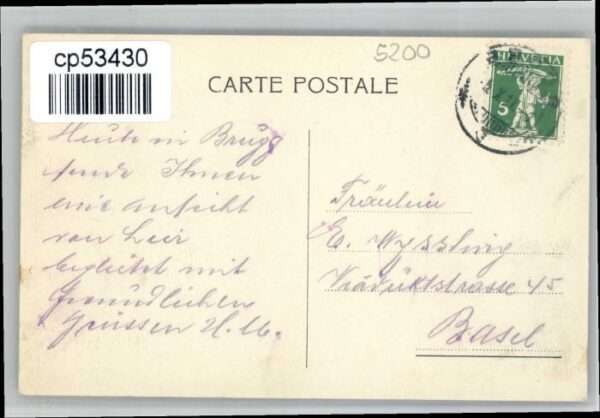 cp53430
5200
CARTE POSTALE
HELVETIA
5
Heute in Brugg
sende Ihnen
eine Ansicht
von hier
begleitet mit
freundlichen
Grüssen H. M.
Fräulein
E. Wyssling
Viaduktstrasse 45
Basel